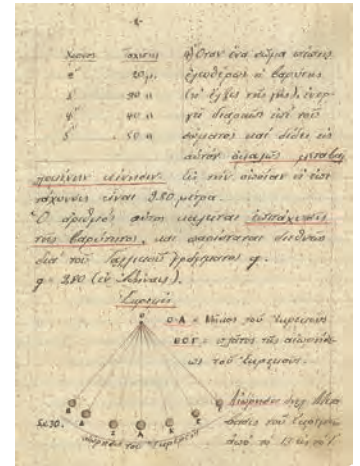 Χρόνος Ταχύτης
β" 20 μ.
γ" 30 "
δ" 40 "
ε" 50 "
Ὅταν ἕνα σῶμα πίπτῃ
ἐλευθέρως ἡ βαρύτης
(ἡ ἕλξις τῆς γῆς), ἐνερ-
γεῖ διαρκῶς ἐπὶ τοῦ
σώματος καὶ δίδει εἰς
αὐτὸν ὁμαλῶς μεταβαλ
κίνησιν. τὴν ὁποίαν ἡ ἐπι
τάχυνσις εἶναι 9.80 μέτρα.
Ὁ ἀριθμὸς αὐτὸς καλεῖται ἐπιτάχυνσις
τῆς βαρύτητος, καὶ παρίσταται διεθνῶς
διὰ τοῦ Γαλλικοῦ γράμματος g.
g = 9.80 (ἐν Ἀθήναις).
Ἐκκρεμές
Ο
Ο-Α = Μῆκος τοῦ Ἐκκρεμοῦς
ΒΟΓ = πλάτος τῆς αἰωρήσε-
ως τοῦ Ἐκκρεμοῦς.
Α
Σχ. 30.
αἰώρησις τοῦ Ἐκκρεμοῦς
Αἰώρησις
τοῦ Ἐκκρεμοῦς
ἀπὸ τὸ